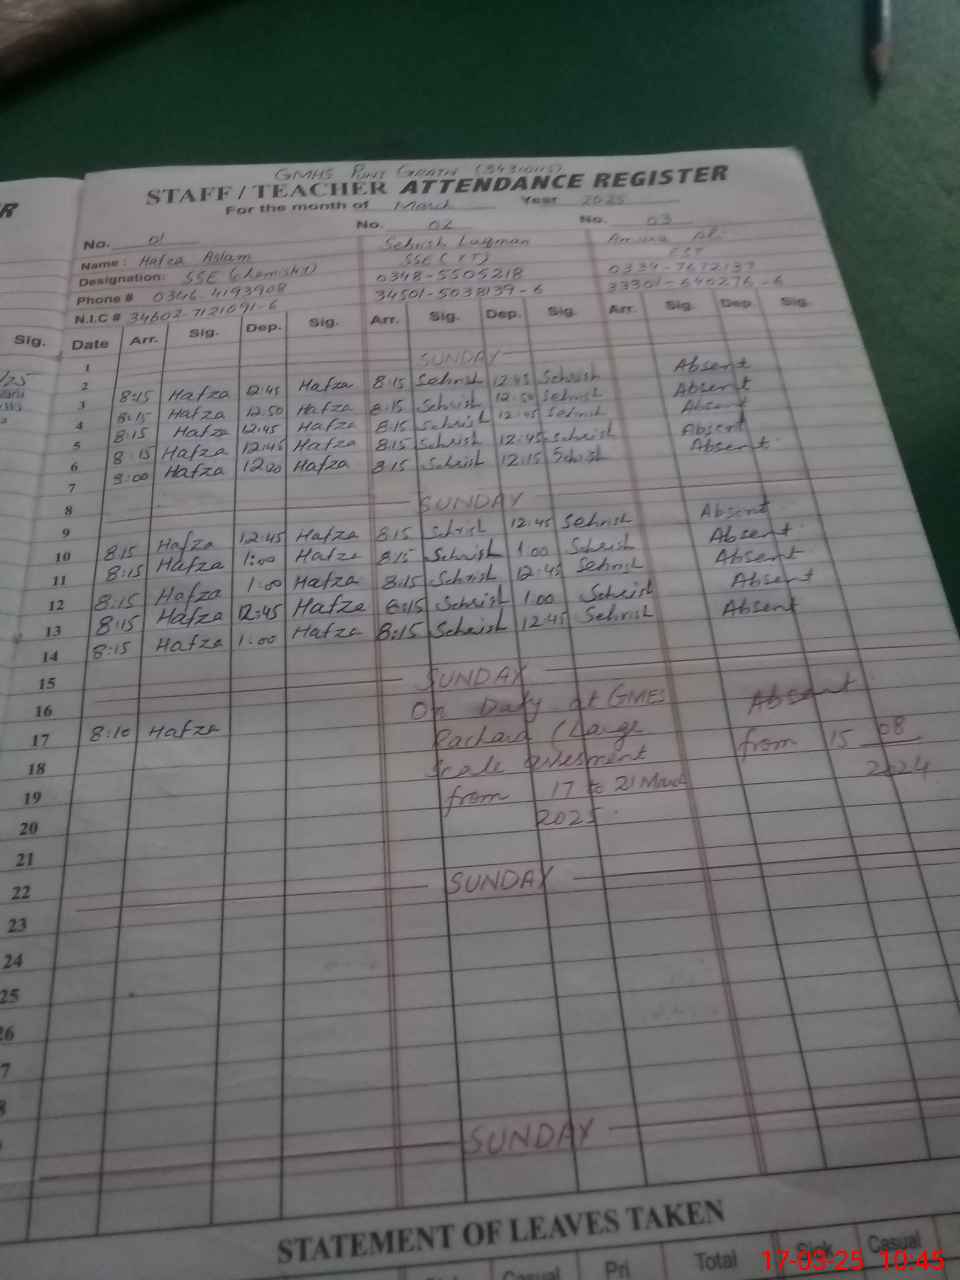 GMHS
STAFF/TEACHER ATTENDANCE REGISTER
For the month of March Year 2025
No. 01 No. 02 No. 03
Name: Hafza Aslam Sehrish Luqman
Designation: SSE (chemistry) SSE (
Phone # 0346-4193908 0348-5505218
N.I.C # 34602-7121091-6 34501-5038139-6
Sig. Date Arr. Sig. Dep. Sig. Arr. Sig. Dep. Sig. Arr. Sig. Dep. Sig.
1 SUNDAY
2 8:15 Hafza 12:45 Hafza 8:15 Sehrish 12:45 Sehrish Absent
3 8:15 Hafza 12:50 Hafza 8:15 Sehrish 12:50 Sehrish Absent
4 8:15 Hafza 12:45 Hafza 8:15 Sehrish 12:45 Sehrish Absent
5 8:15 Hafza 12:45 Hafza 8:15 Sehrish 12:45 Sehrish Absent
6 8:00 Hafza 12:00 Hafza 8:15 Sehrish 12:15 Sehrish Absent
7
8 SUNDAY
9 8:15 Hafza 12:45 Hafza 8:15 Sehrish 12:45 Sehrish Absent
10 8:15 Hafza 1:00 Hafza 8:15 Sehrish 1:00 Sehrish Absent
11 8:15 Hafza 1:00 Hafza 8:15 Sehrish 12:45 Sehrish Absent
12 8:15 Hafza 12:45 Hafza 8:15 Sehrish 1:00 Sehrish Absent
13 8:15 Hafza 1:00 Hafza 8:15 Sehrish 12:45 Sehrish Absent
14
15 SUNDAY
16 On Duty at GMES Absent
17 8:10 Hafza (Large from 15 08
18 Scale 2024
19 from 17 to 21 March
20 2025.
21
22 SUNDAY
23
24
25
26
7
8
SUNDAY
STATEMENT OF LEAVES TAKEN
Casual Pri Total Sick Casual
17-03-25 10:45